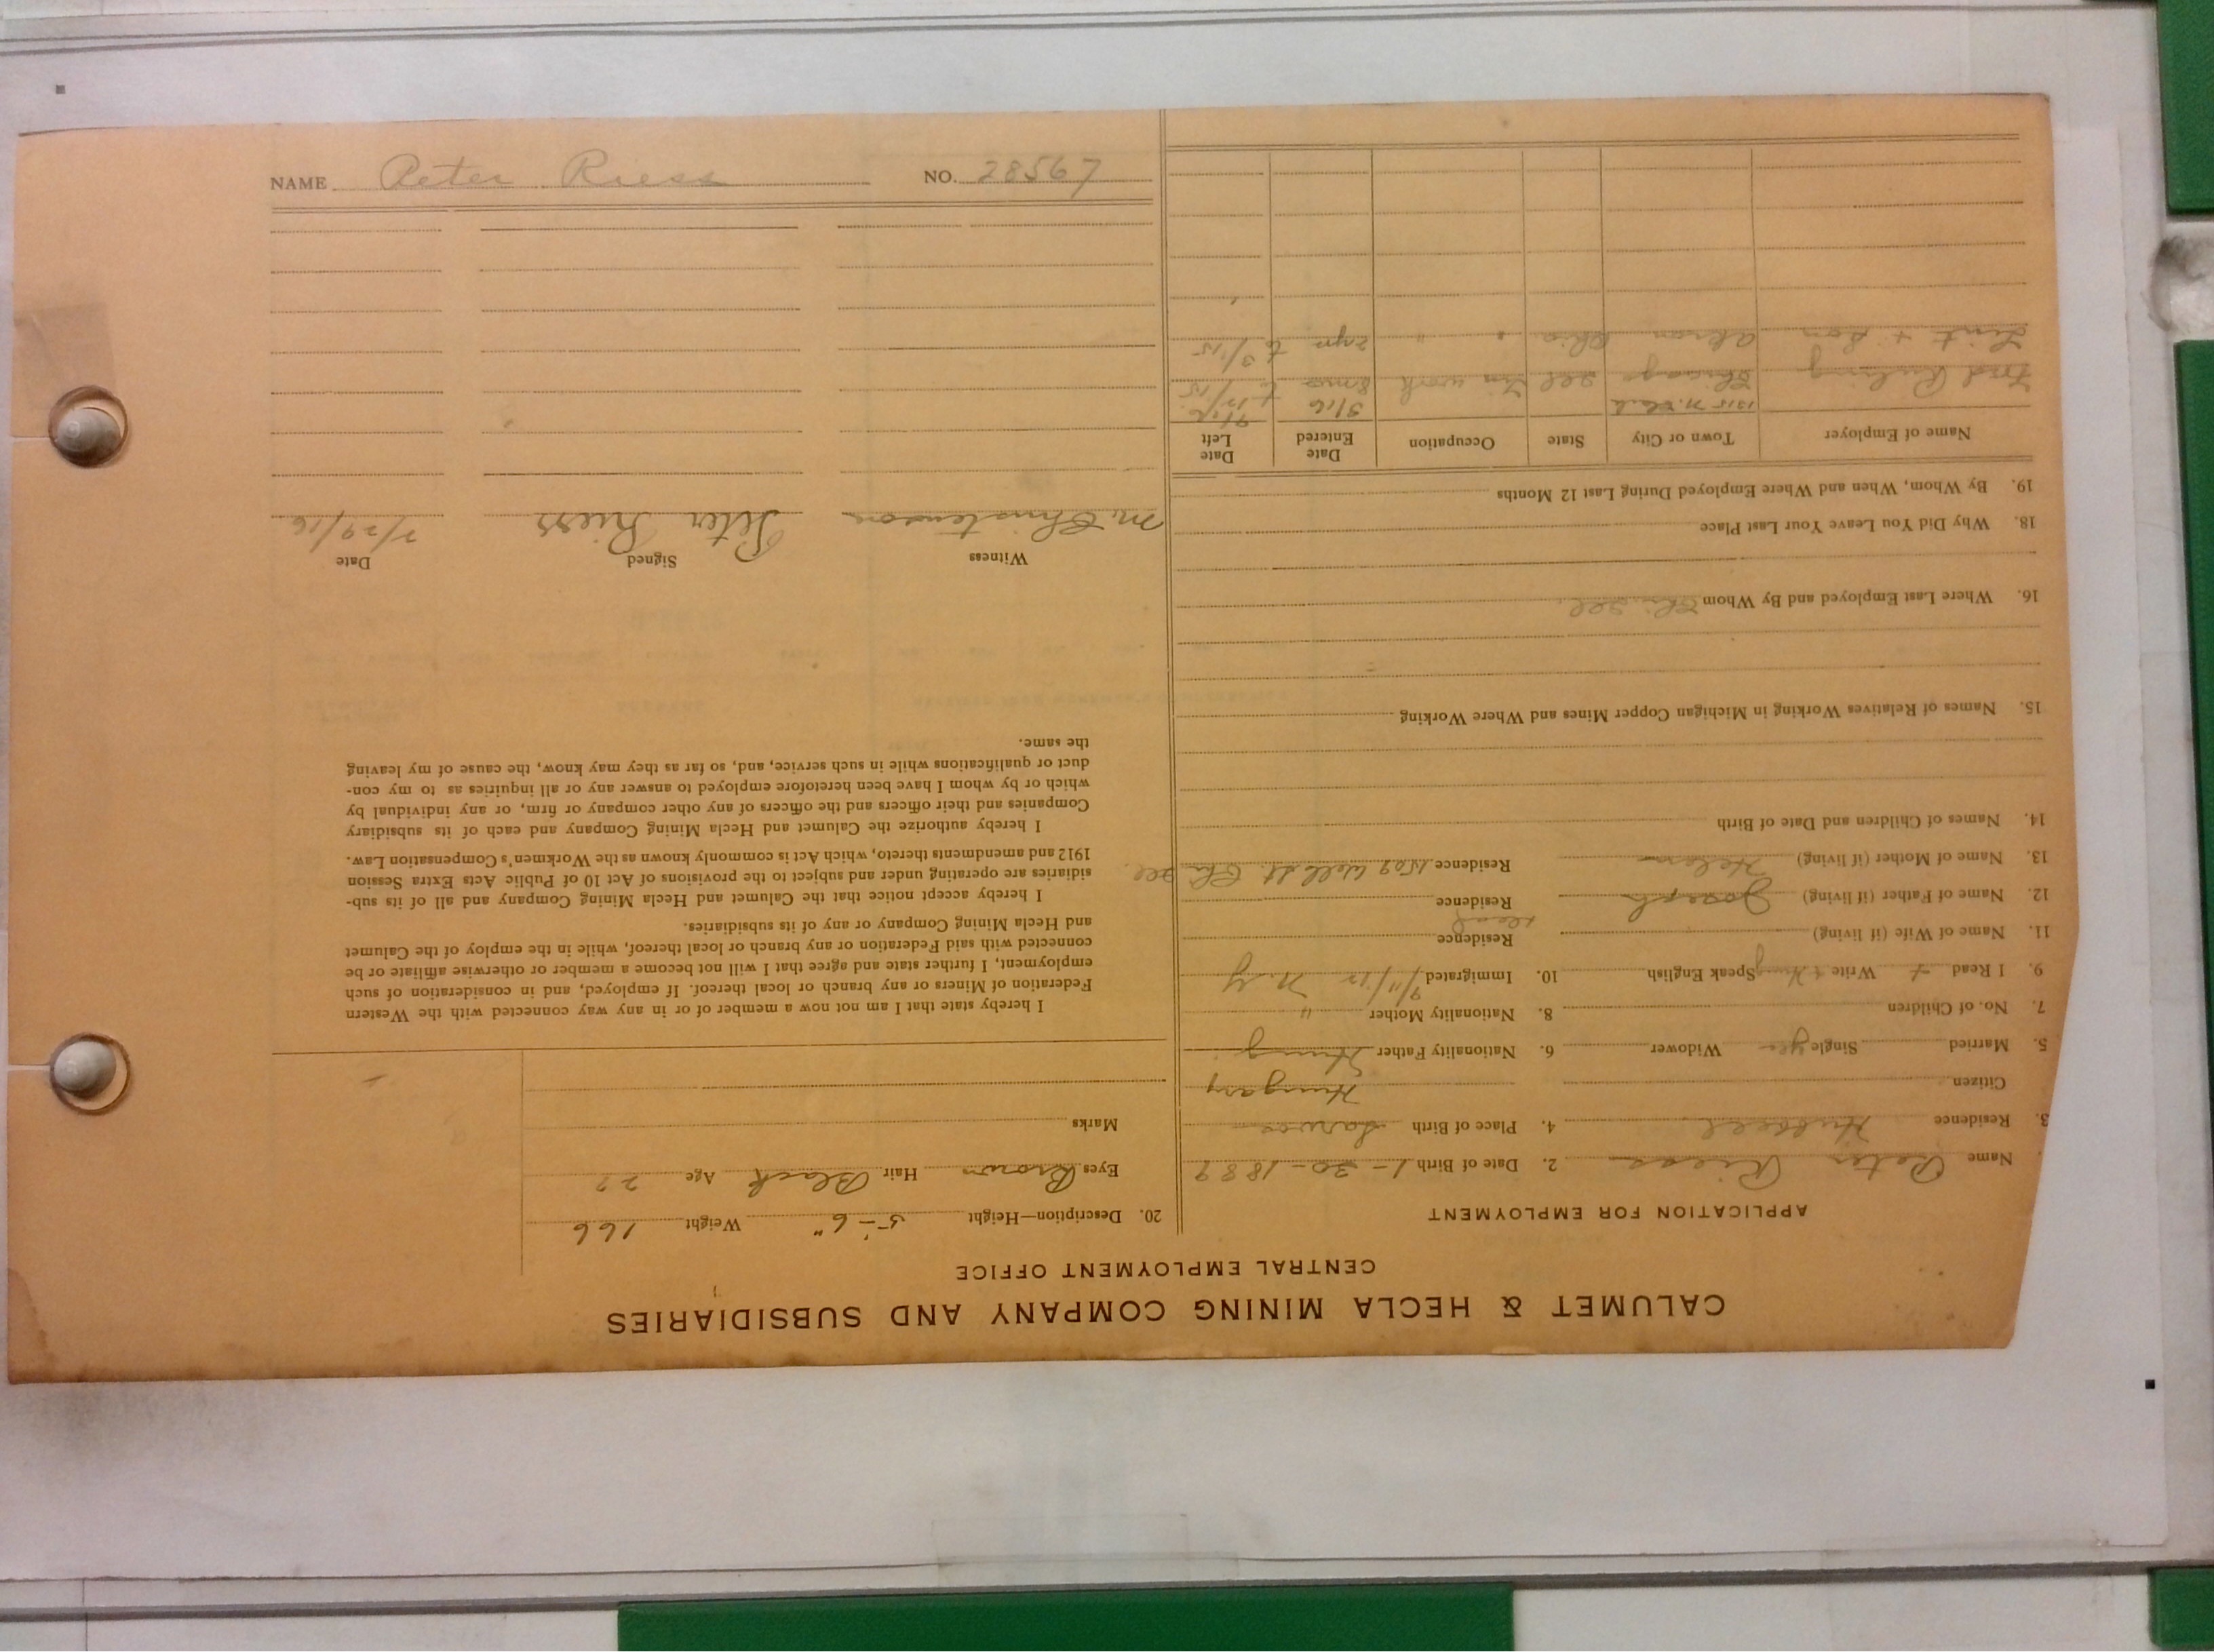 CALUMET & HECLA MINING COMPANY AND SUBSIDIARIES
CENTRAL EMPLOYMENT OFFICE
APPLICATION FOR EMPLOYMENT
Name Peter Riess 2. Date of Birth 1-30-1889
3. Residence Hubbell 4. Place of Birth
Citizen Hungary
5. Married Single yes Widower 6. Nationality Father Hung
7. No. of Children 8. Nationality Mother "
9. I Read + Write + Hung Speak English 10. Immigrated 9/11/12 N.Y
11. Name of Wife (if living) Residence
12. Name of Father (if living) Joseph Residence dead
13. Name of Mother (if living) Helen Residence 1509 Well St. Chi Ill
14. Names of Children and Date of Birth
15. Names of Relatives Working in Michigan Copper Mines and Where Working
16. Where Last Employed and By Whom Chi. Ill.
18. Why Did You Leave Your Last Place
19. By Whom, When and Where Employed During Last 12 Months
Name of Employer Town or City State Occupation Date Entered Date Left
1315 N. Clark 5/16
Fred Chicago Ill Tin work 8mos to 12/15
+ Son Akron Ohio " " 2yrs to 3/15
20. Description—Height 5'-6" Weight 166
Eyes Brown Hair Black Age 27
Marks
I hereby state that I am not now a member of or in any way connected with the Western
Federation of Miners or any branch or local thereof. If employed, and in consideration of such
employment, I further state and agree that I will not become a member or otherwise affiliate or be
connected with said Federation or any branch or local thereof, while in the employ of the Calumet
and Hecla Mining Company or any of its subsidiaries.
I hereby accept notice that the Calumet and Hecla Mining Company and all of its sub-
sidiaries are operating under and subject to the provisions of Act 10 of Public Acts Extra Session
1912 and amendments thereto, which Act is commonly known as the Workmen's Compensation Law.
I hereby authorize the Calumet and Hecla Mining Company and each of its subsidiary
Companies and their officers and the officers of any other company or firm, or any individual by
which or by whom I have been heretofore employed to answer any or all inquiries as to my con-
duct or qualifications while in such service, and, so far as they may know, the cause of my leaving
the same.
Witness Signed Date
M. Christenson Peter Riess 7/29/16
NAME Peter Riess NO. 28567